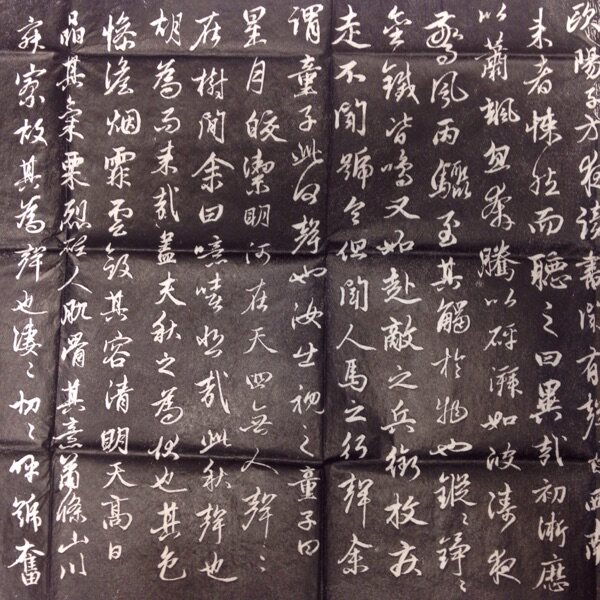 歐陽子方夜讀書聞有聲自西南
來者悚然而聽之曰異哉初淅瀝
以蕭颯忽奔騰以砰湃如波濤夜
驚風雨驟至其觸於物也鏦〻錚〻
金鐵皆鳴又如赴敵之兵銜枚疾
走不聞號令但聞人馬之行聲余
謂童子此何聲也汝出視之童子曰
星月皎潔明河在天四無人聲〻
在樹間余曰噫嘻悲哉此秋聲也
胡為而來哉蓋夫秋之為狀也其色
慘澹烟霏雲斂其容清明天高日
晶其氣栗烈砭人肌骨其意蕭條山川
寂寥故其為聲也淒〻切〻呼號奮